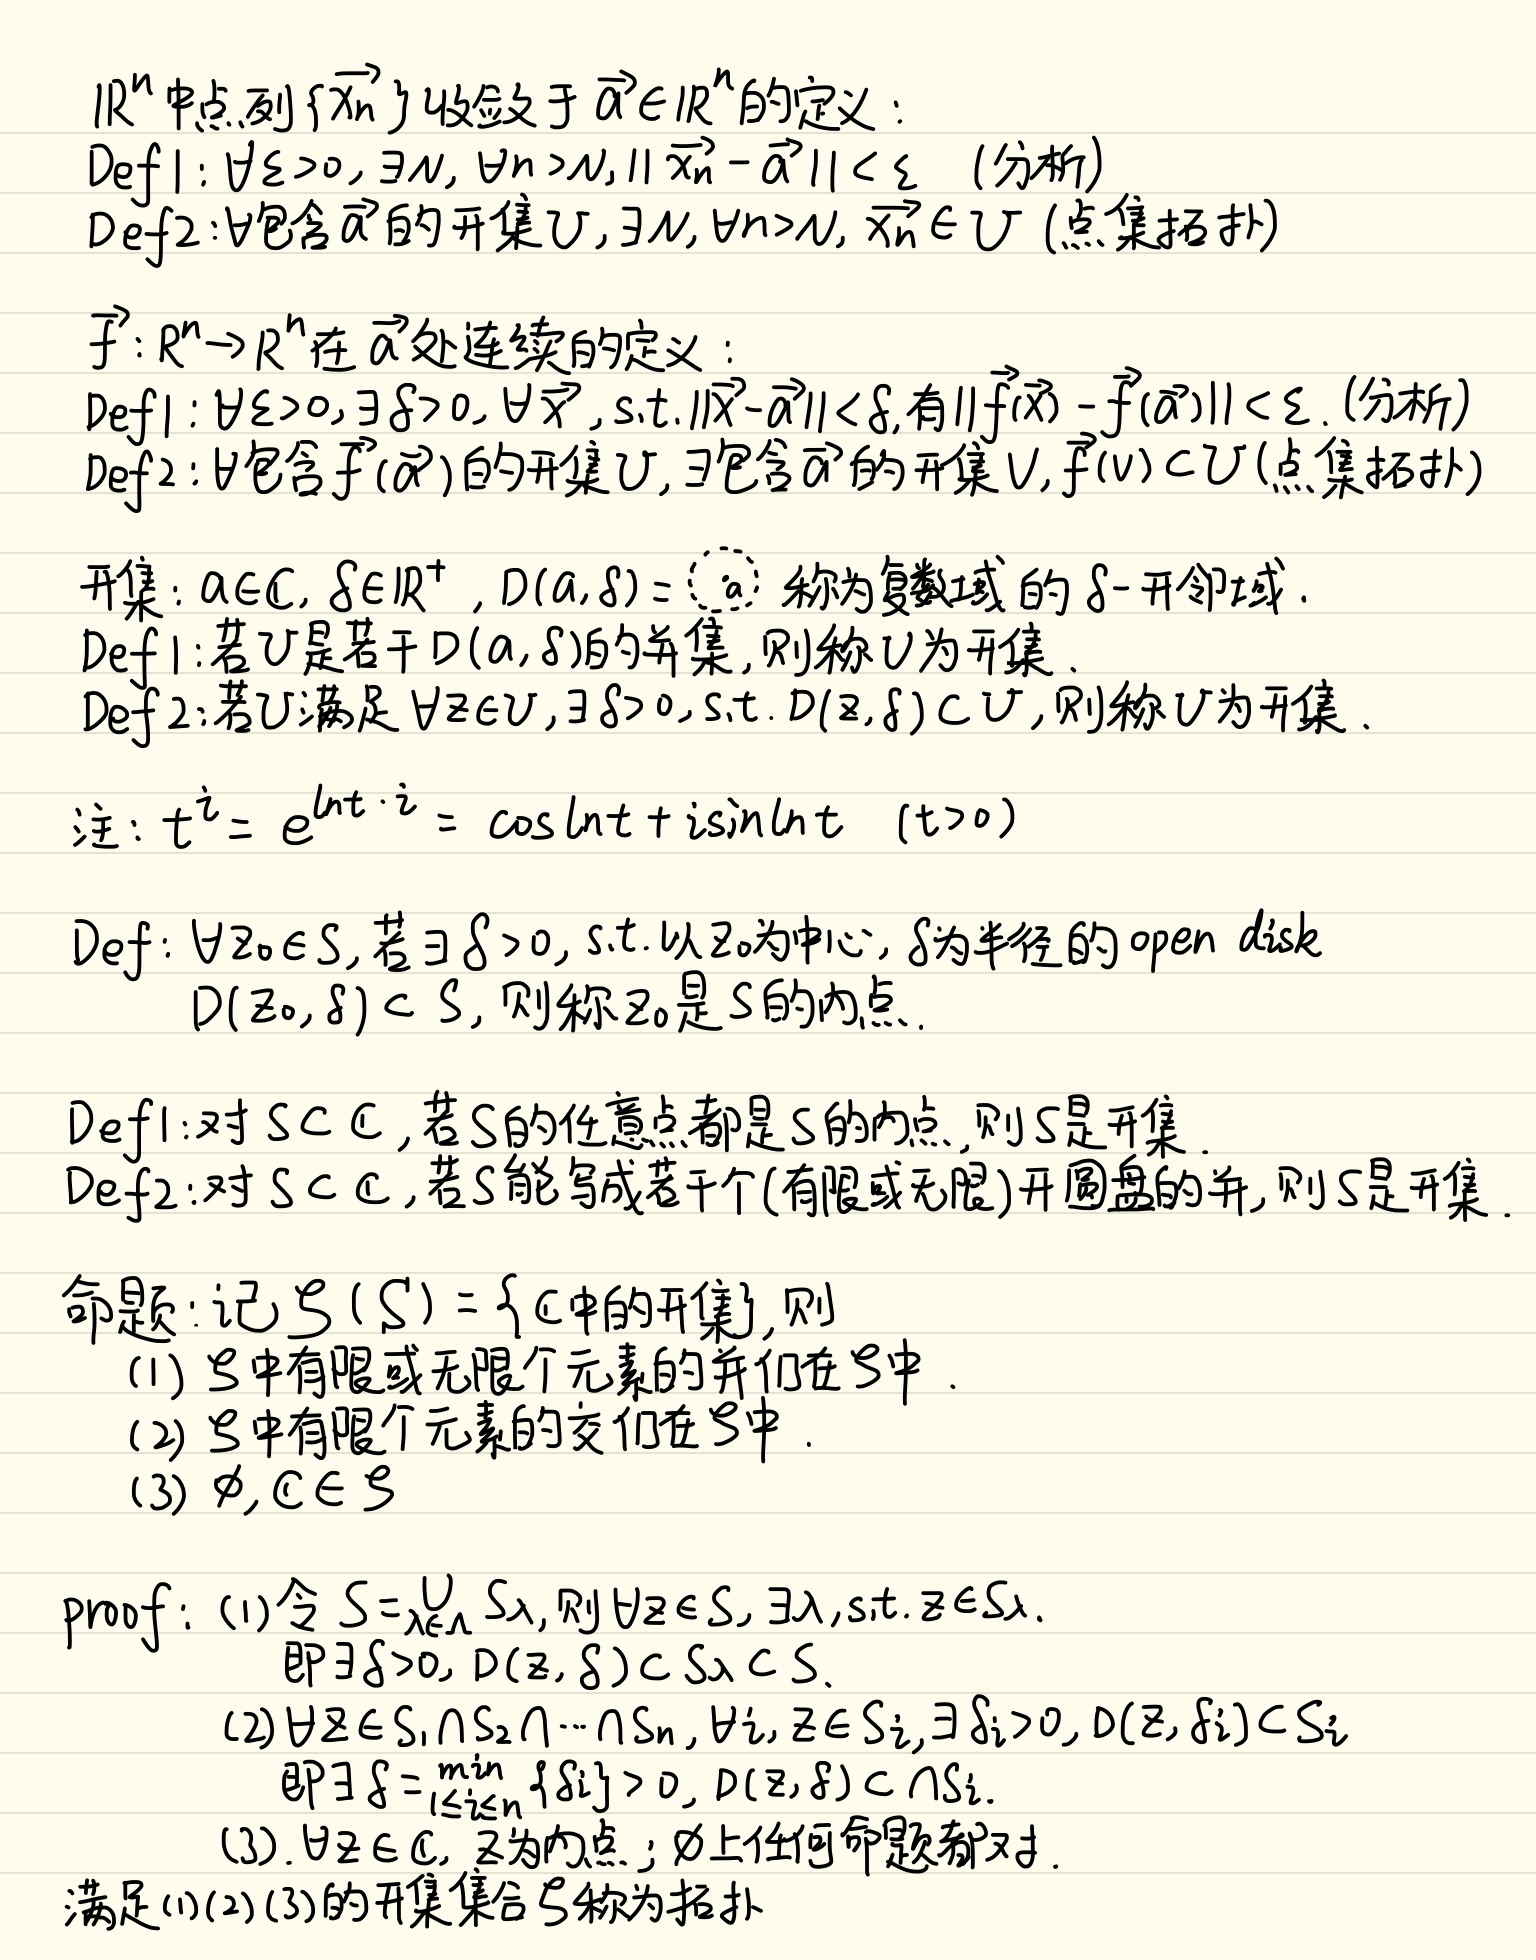 ℝⁿ中点列{x⃗ₙ}收敛于 a⃗∈ℝⁿ的定义:
Def1: ∀ε>0, ∃N, ∀n>N, ||x⃗ₙ - a⃗|| < ε (分析)
Def2: ∀包含 a⃗ 的开集U, ∃N, ∀n>N, x⃗ₙ∈U (点集拓扑)
f⃗: Rⁿ→Rⁿ在 a⃗ 处连续的定义:
Def1: ∀ε>0, ∃δ>0, ∀x⃗, s.t. ||x⃗-a⃗||<δ, 有||f⃗(x⃗) - f⃗(a⃗)|| < ε. (分析)
Def2: ∀包含f⃗(a⃗)的开集U, ∃包含a⃗的开集V, f⃗(V)⊂U (点集拓扑)
开集: a∈ℂ, δ∈ℝ⁺, D(a,δ) = a 称为复数域的 δ-开邻域.
Def1: 若U是若干D(a,δ)的并集, 则称U为开集.
Def2: 若U满足 ∀z∈U, ∃δ>0, s.t. D(z,δ)⊂U, 则称U为开集.
注: tⁱ = e^{lnt·i} = coslnt + isinlnt (t>0)
Def: ∀z₀∈S, 若∃δ>0, s.t. 以z₀为中心, δ为半径的open disk
D(z₀,δ)⊂S, 则称z₀是S的内点.
Def1: 对S⊂ℂ, 若S的任意点都是S的内点, 则S是开集.
Def2: 对S⊂ℂ, 若S能写成若干个(有限或无限)开圆盘的并, 则S是开集.
命题: 记 𝒮(S) = {ℂ中的开集}, 则
(1) 𝒮中有限或无限个元素的并仍在𝒮中.
(2) 𝒮中有限个元素的交仍在𝒮中.
(3) ∅, ℂ∈𝒮
proof: (1) 令 S=∪_{λ∈Λ} S_λ, 则∀z∈S, ∃λ, s.t. z∈S_λ.
即∃δ>0, D(z,δ)⊂S_λ⊂S.
(2) ∀z∈S₁∩S₂∩⋯∩Sₙ, ∀i, z∈Sᵢ, ∃δᵢ>0, D(z,δᵢ)⊂Sᵢ
即∃δ = min_{1≤i≤n}{δᵢ}>0, D(z,δ)⊂∩Sᵢ.
(3). ∀z∈ℂ, z为内点; ∅上任何命题都对.
满足(1)(2)(3)的开集集合𝒮称为拓扑